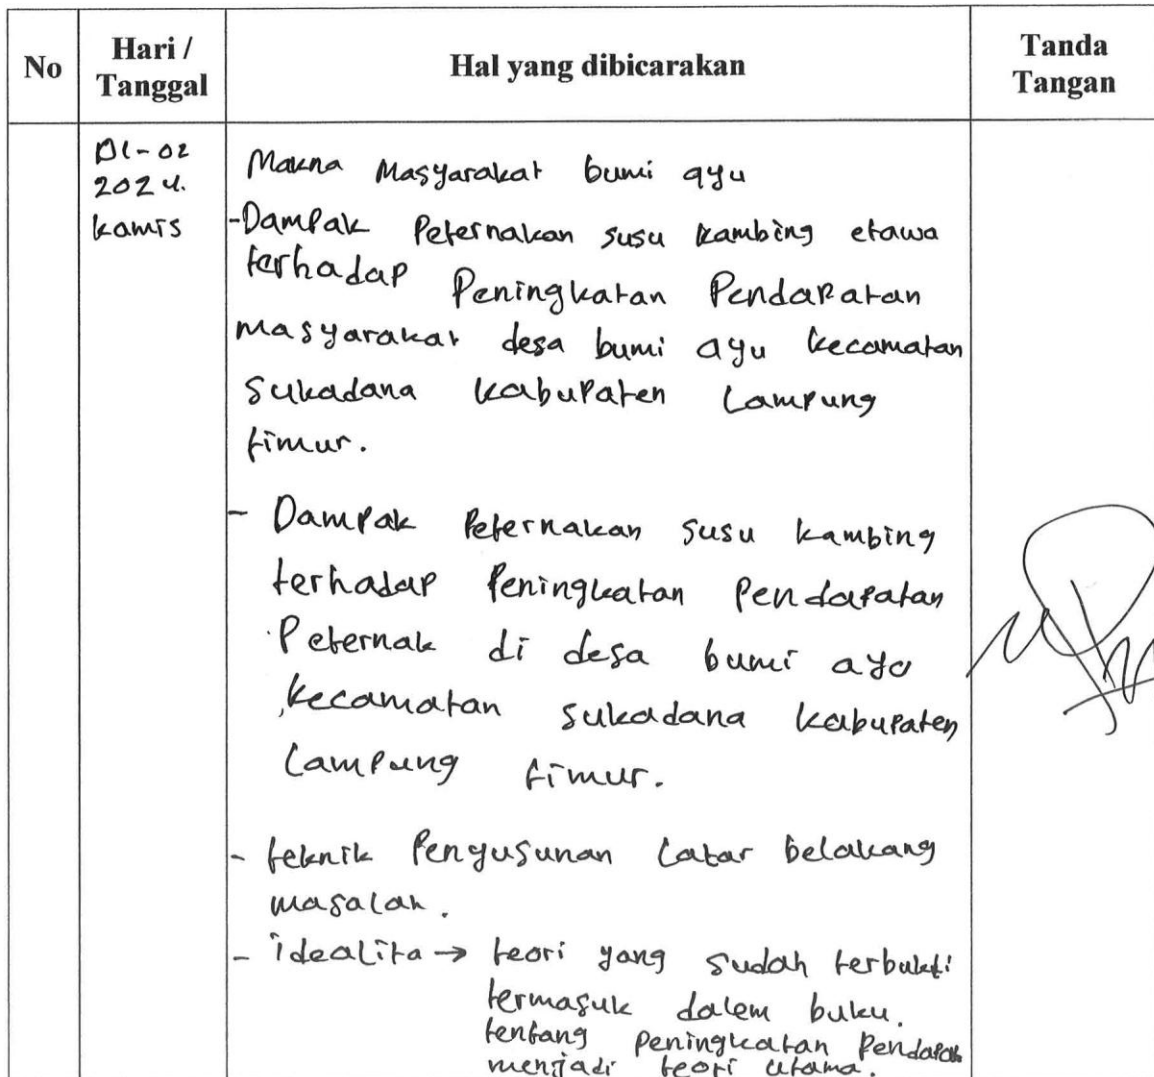 No
Hari /
Tanggal
Hal yang dibicarakan
Tanda
Tangan
01-02
2024.
kamis
Makna Masyarakat bumi ayu
-Dampak Peternakan susu kambing etawa
terhadap Peningkatan Pendapatan
masyarakat desa bumi ayu kecamatan
Sukadana kabupaten Lampung
timur.
- Dampak Peternakan susu kambing
terhadap Peningkatan Pendapatan
Peternak di desa bumi ayu
kecamatan sukadana kabupaten
Lampung timur.
- teknik Penyusunan Latar belakang
masalah.
- idealita → teori yang sudah terbukti
termasuk dalem buku.
tentang peningkatan Pendapatan
menjadi teori utama.